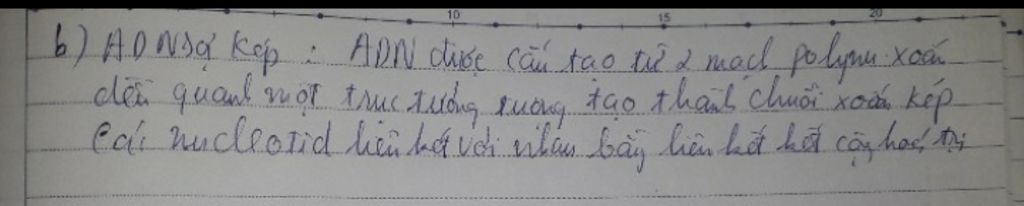 10 15 20
b) ADN sợi kép : ADN được cấu tạo từ 2 mạch polynu xoắn
đều quanh một trục tưởng tượng tạo thành chuỗi xoắn kép
Các nucleotid liên kết với nhau bằng liên kết kết cộng hoá trị